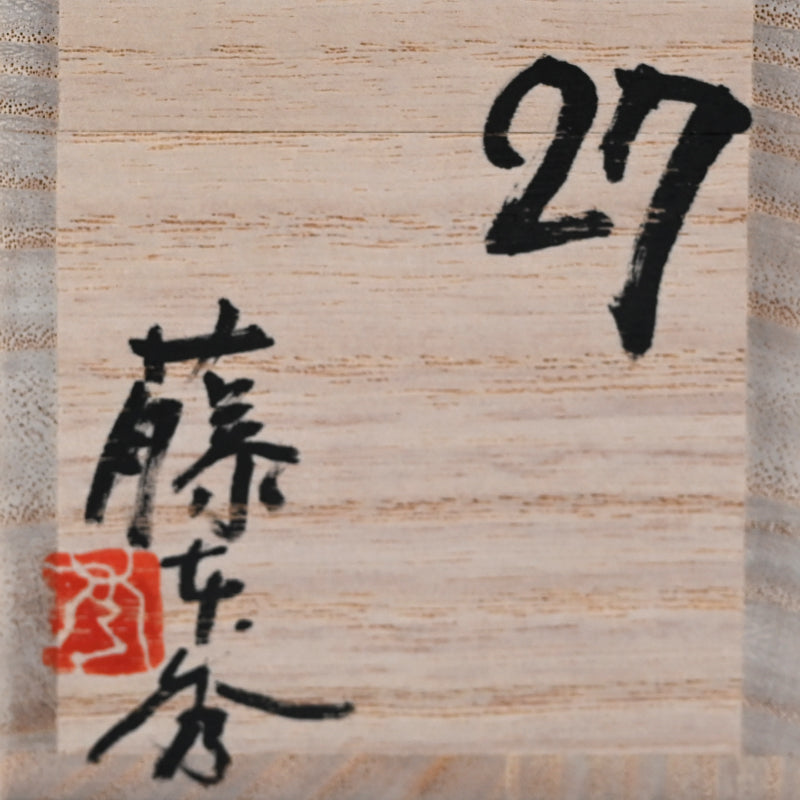 27
藤本秀